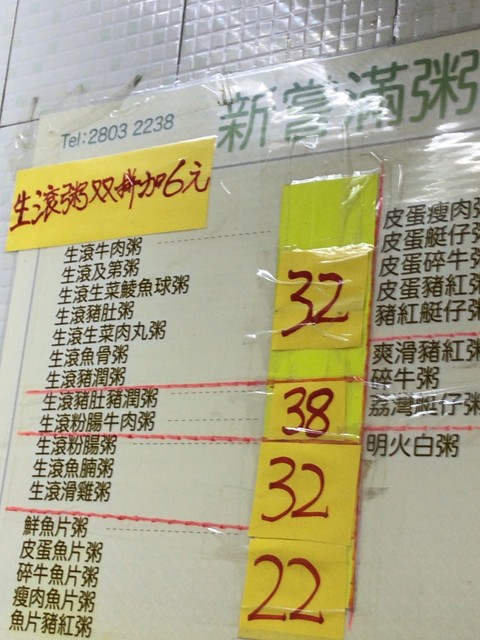 Tel:2803 2238
新嘗滿粥
生滾粥双拼加6元
生滾牛肉粥
生滾及弟粥
生滾生菜鯪魚球粥
生滾豬肚粥
生滾生菜肉丸粥
生滾魚骨粥
生滾豬潤粥
32
生滾豬肚豬潤粥
生滾粉腸牛肉粥
38
生滾粉腸粥
生滾魚腩粥
生滾滑雞粥
32
鮮魚片粥
皮蛋魚片粥
碎牛魚片粥
瘦肉魚片粥
魚片豬紅粥
22
皮蛋瘦肉粥
皮蛋艇仔粥
皮蛋碎牛粥
皮蛋豬紅粥
豬紅艇仔粥
爽滑豬紅粥
碎牛粥
荔灣艇仔粥
明火白粥